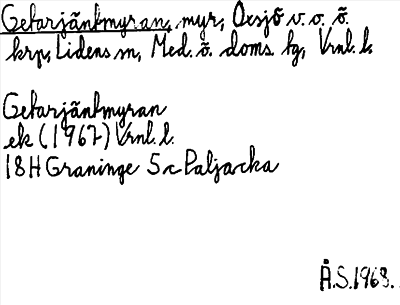 Getarjäntmyran, myr, Oxsjö v. o. ö.
krp, Lidens sn, Med. ö. doms. tg, Vrnl. l.
Getarjäntmyran
ek (1967) Vrnl. l.
18H Graninge 5c Paljacka
Å.S. 1968.